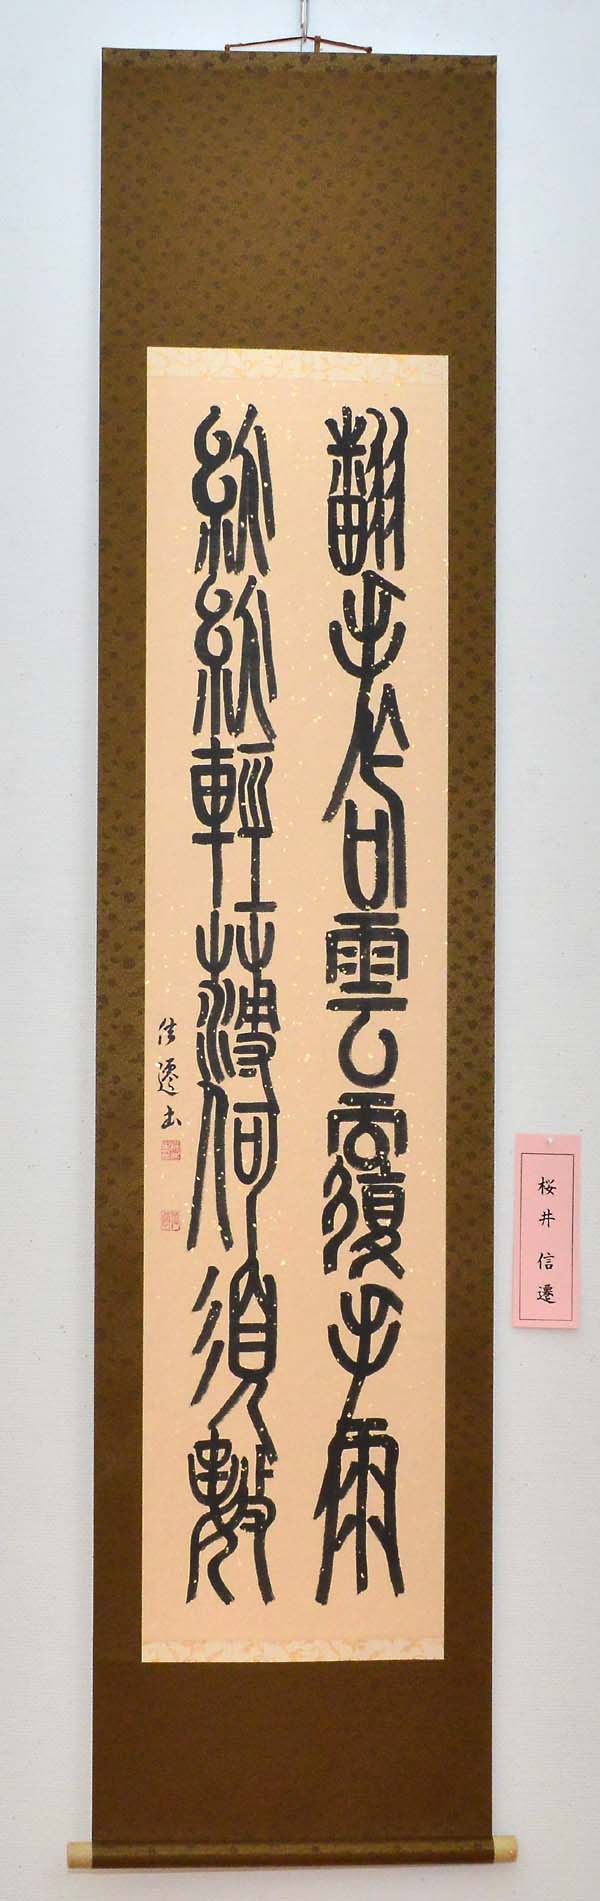 翻手作雲覆手雨
紛紛輕薄何須數
信遷書
桜井 信遷